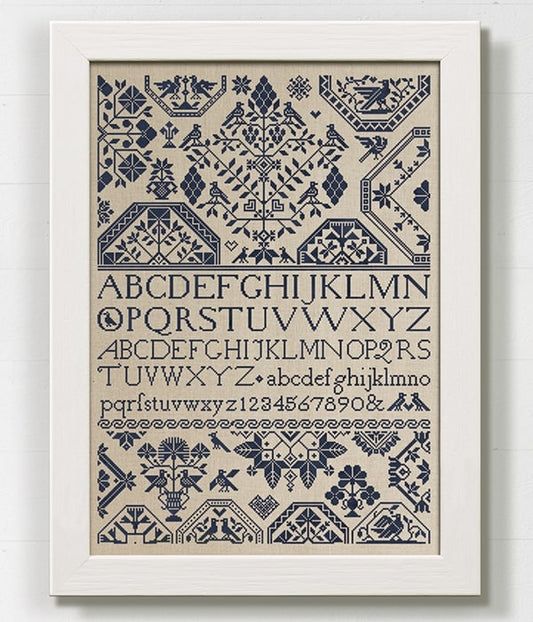 ABCDEFGHIJKLMN
OPQRSTUVWXYZ
ABCDEFGHIJKLMNOPQRS
TUVWXYZ◆abcdefghijklmno
pqrſstuvwxyz1234567890&